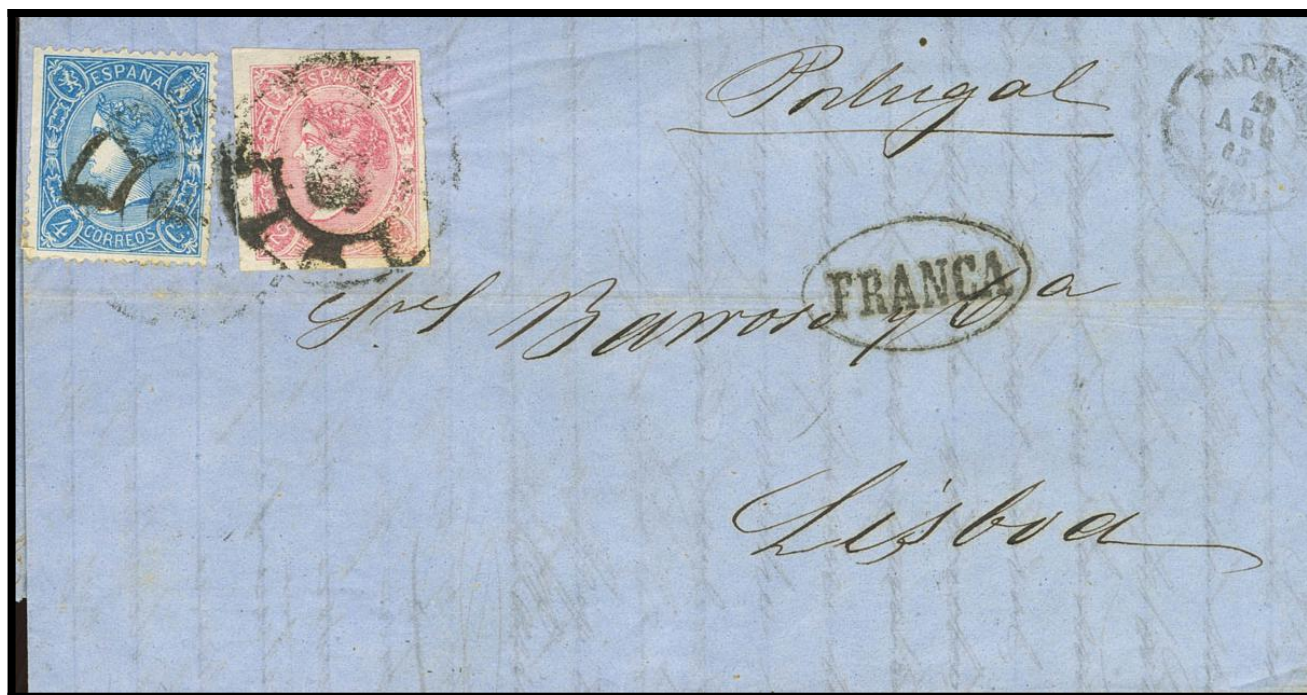 ESPAÑA
4 Cs
CORREOS
ESPAÑA
2
Portugal
29
ABR
65
FRANCA
Sres Barroso y Ca
Lisboa